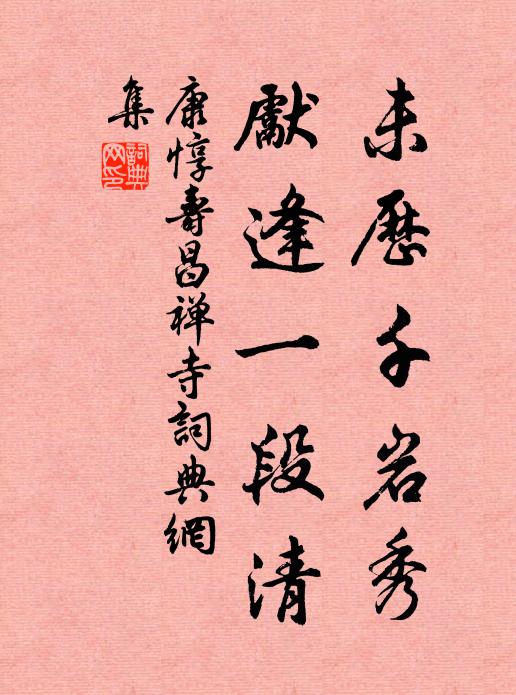 未歷千岩秀
獻逢一段清
康惇壽昌禅寺詞典網
集
詞典網印